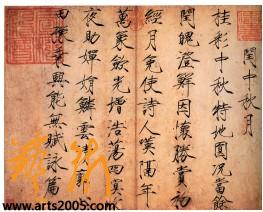 閏中秋月
桂彩中秋特地圓況當餘
閏魄澄鮮因懷勝賞初
經月免使詩人嘆隔年
萬象斂光增浩蕩四溟
夜助嬋娟鱗雲清
田豁乘興能無賦詠篇
www.arts2005.com